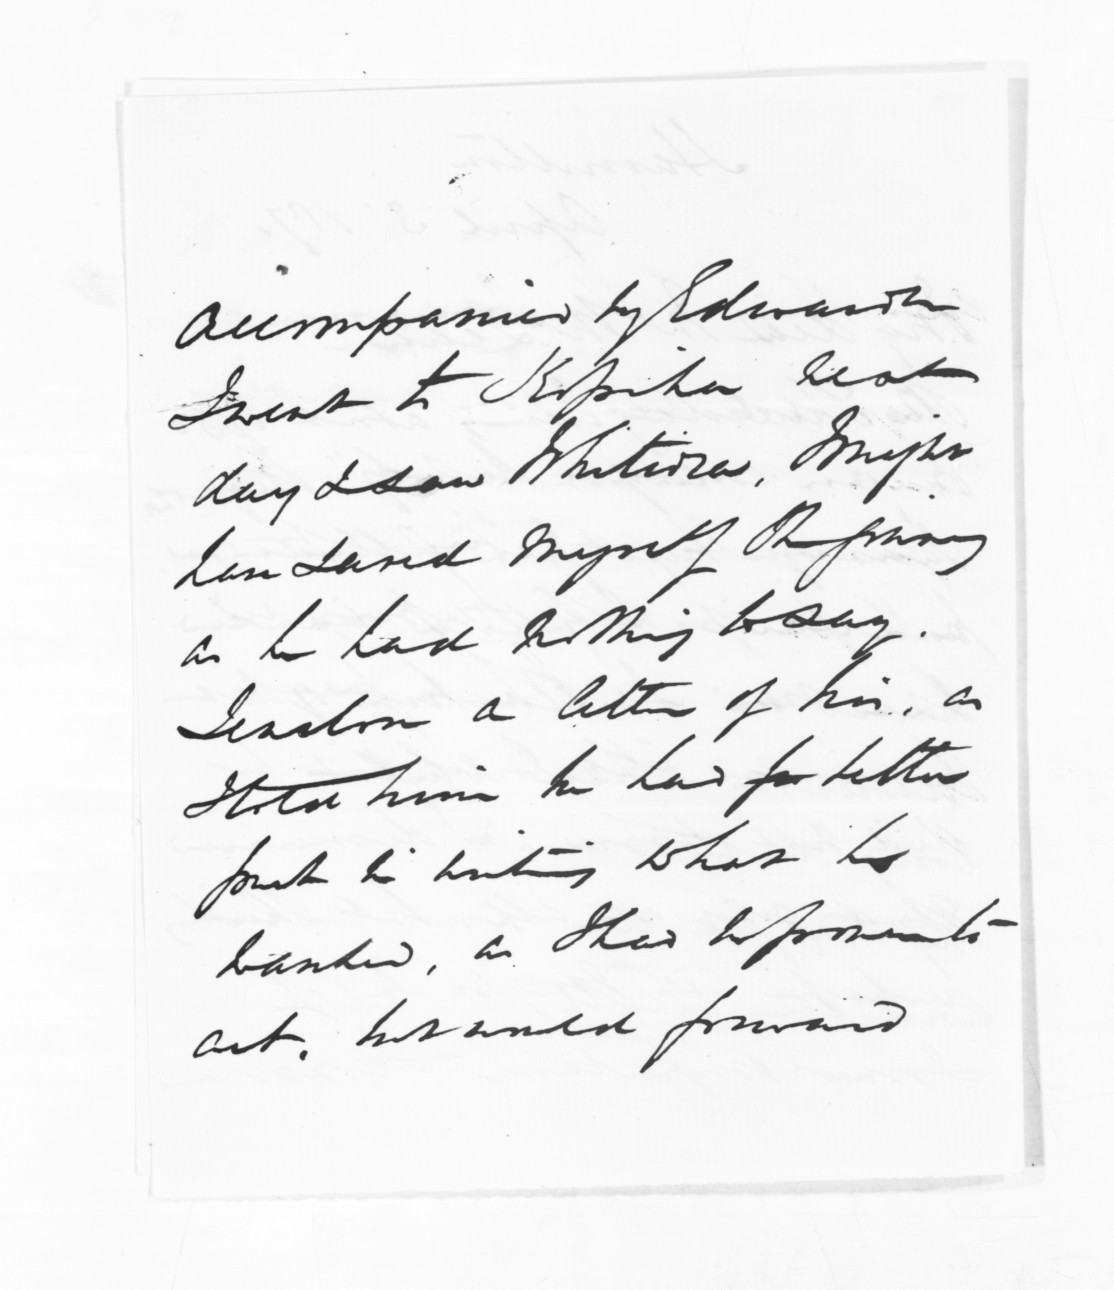 accompanied by Edwards
I went to Kopiha next
day I saw Whitiora, I might
have saved myself the journey
as he had nothing to say.
I enclose a letter of his, as
I told him he had better
put in writing what he
wanted, as I had no power to
act, but would forward